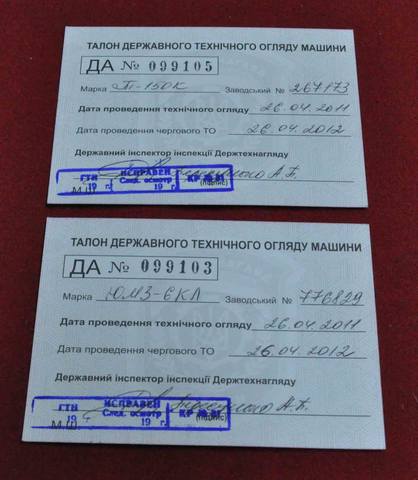 ТАЛОН ДЕРЖАВНОГО ТЕХНІЧНОГО ОГЛЯДУ МАШИНИ
ДА № 099105
Марка Т-150К Заводський № 267173
Дата проведення технічного огляду 26.04.2011
Дата проведення чергового ТО 26.04.2012
Державний інспектор інспекції Держтехнагляду
ГТН ИСПРАВЕН КР
19 г. След. осмотр 19 г. (підпис)
М.Ш.
ТАЛОН ДЕРЖАВНОГО ТЕХНІЧНОГО ОГЛЯДУ МАШИНИ
ДА № 099103
Марка ЮМЗ-6КЛ Заводський № 776829
Дата проведення технічного огляду 26.04.2011
Дата проведення чергового ТО 26.04.2012
Державний інспектор інспекції Держтехнагляду
ГТН ИСПРАВЕН КР
19 г. След. осмотр 19 г. (підпис)
М.Ш.